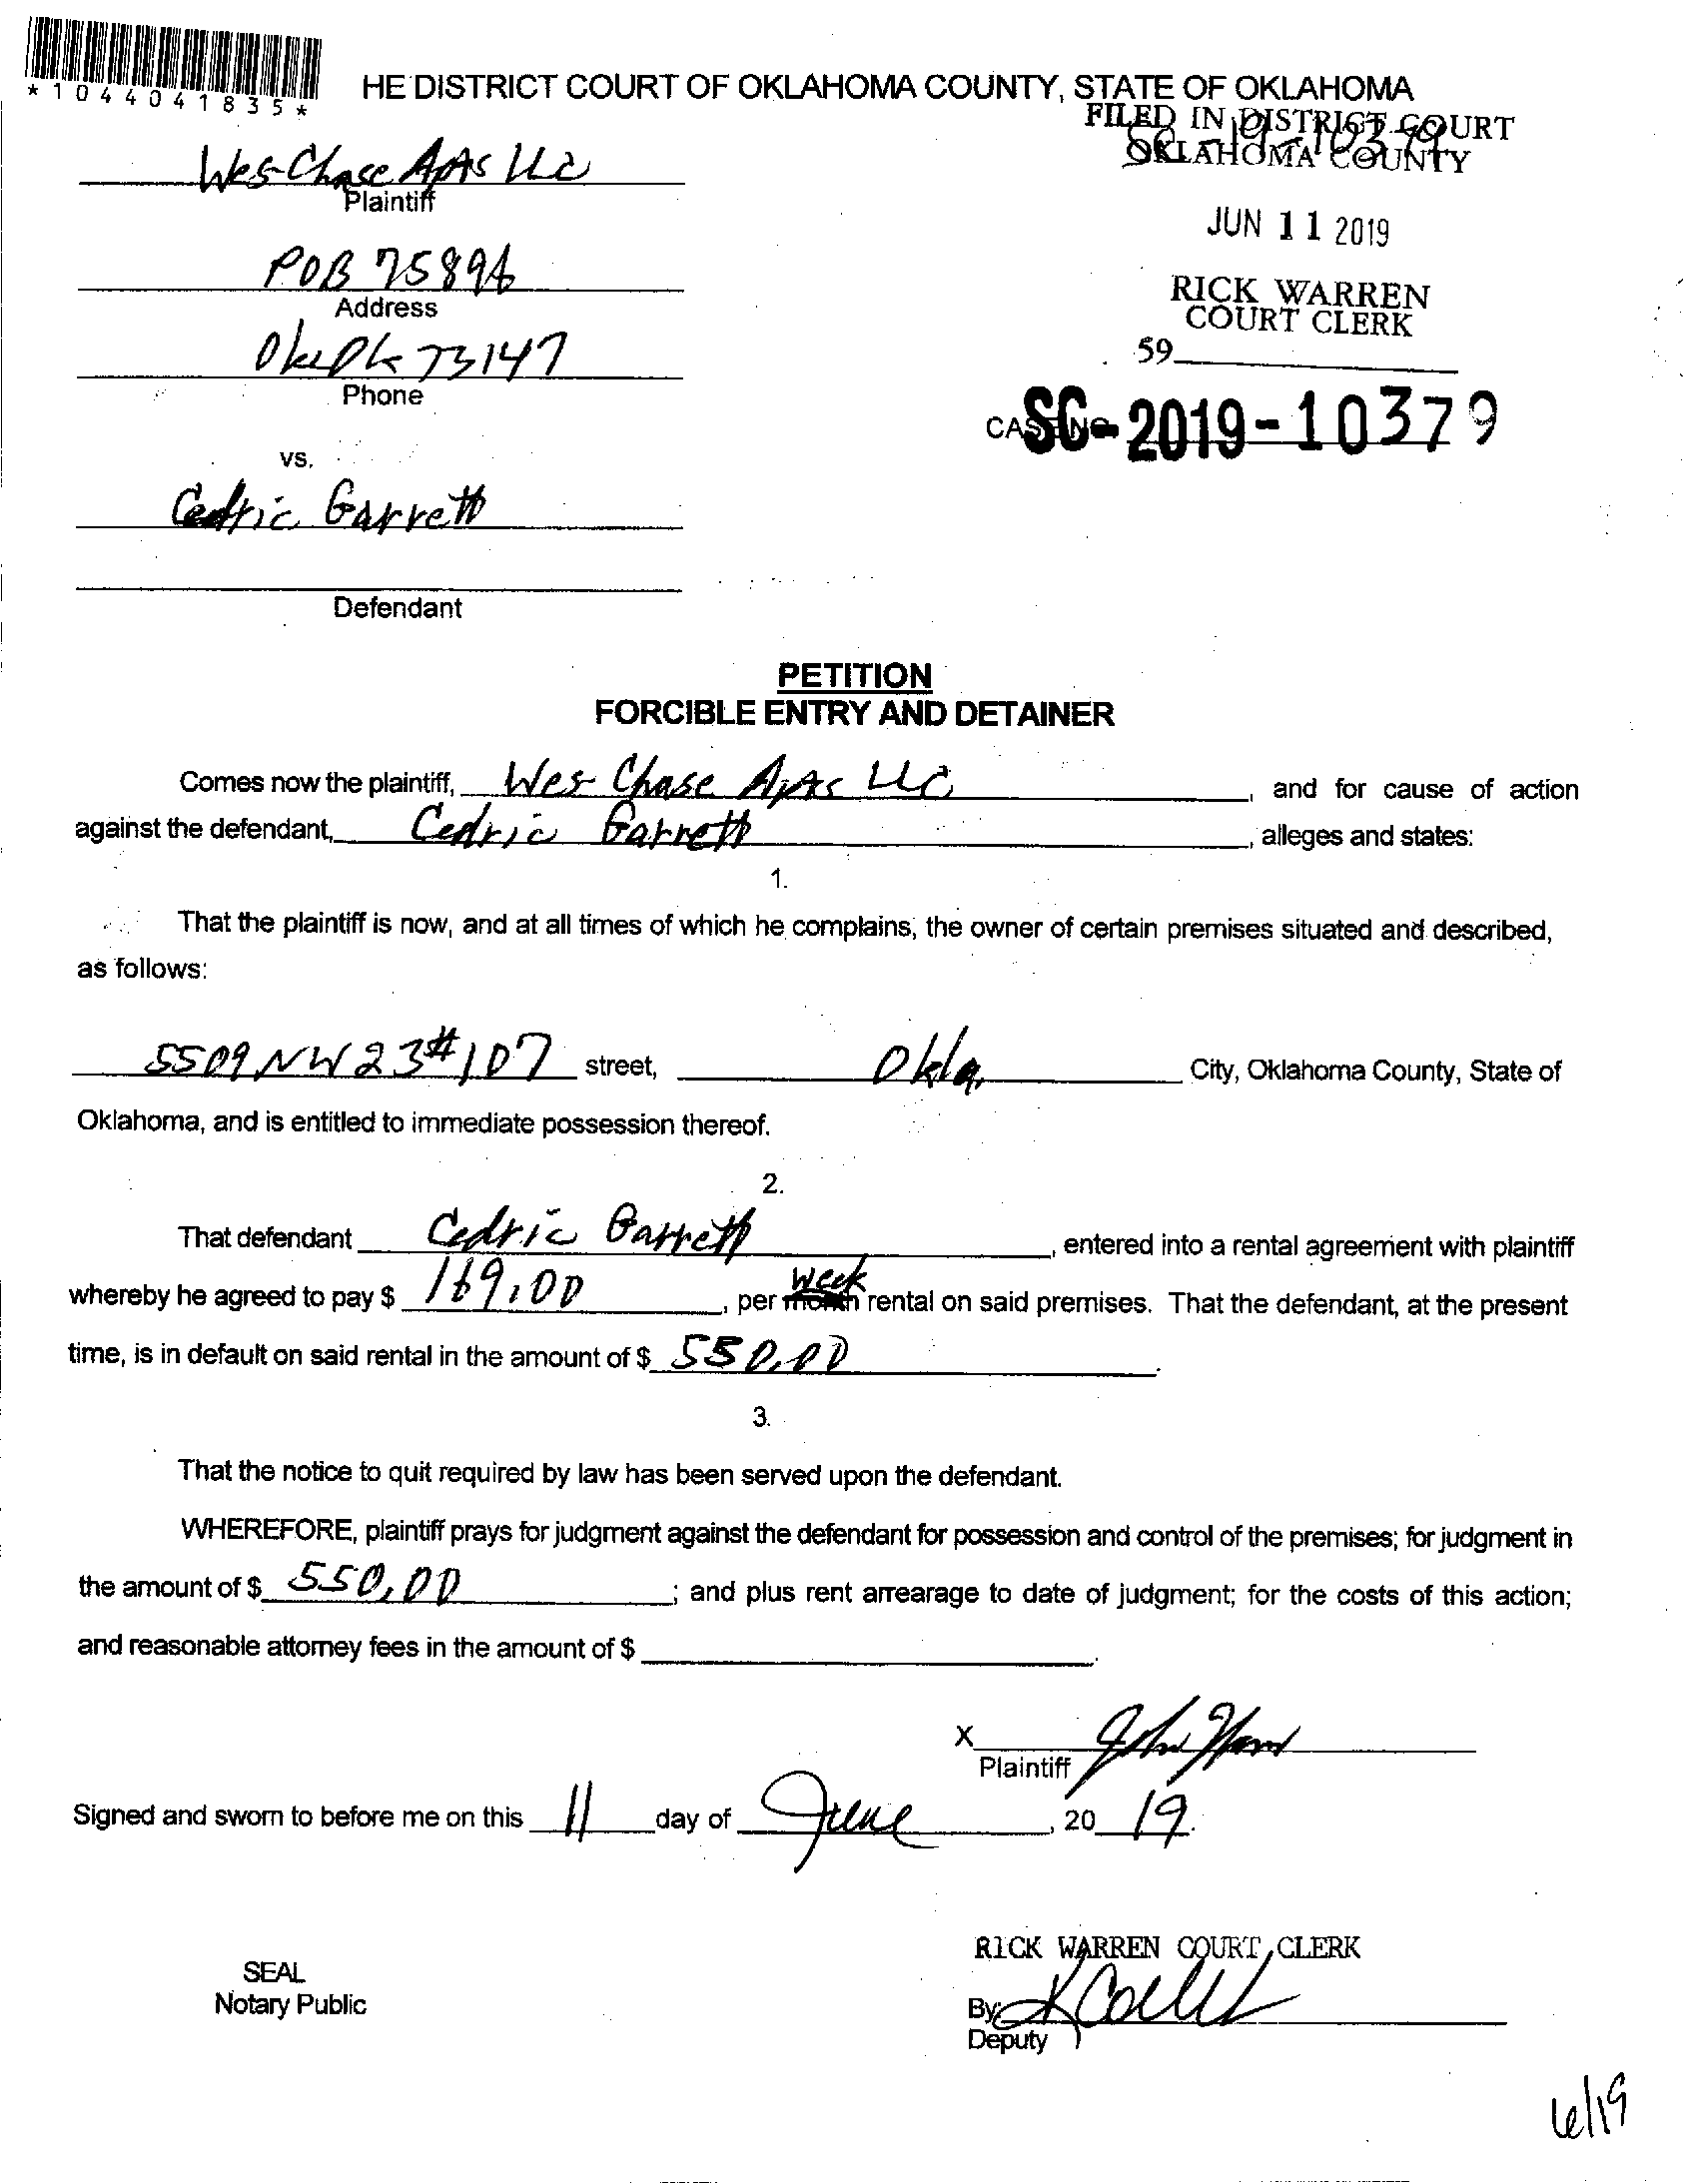 *1044041835*
HE DISTRICT COURT OF OKLAHOMA COUNTY, STATE OF OKLAHOMA
FILED IN DISTRICT COURT
OKLAHOMA COUNTY
SC-19-10379
Wes Chase Apts LLC
Plaintiff
JUN 11 2019
POB 75896
Address
RICK WARREN
COURT CLERK
73147
Phone
59
SC-2019-10379
vs.
Cedric Garrett
Defendant
PETITION
FORCIBLE ENTRY AND DETAINER
Comes now the plaintiff, Wes Chase Apts LLC, and for cause of action
against the defendant, Cedric Garrett, alleges and states:
1.
That the plaintiff is now, and at all times of which he complains, the owner of certain premises situated and described,
as follows:
5509 NW 23 #107 street, Okla. City, Oklahoma County, State of
Oklahoma, and is entitled to immediate possession thereof.
2.
That defendant Cedric Garrett, entered into a rental agreement with plaintiff
whereby he agreed to pay $ 169.00, per month week rental on said premises. That the defendant, at the present
time, is in default on said rental in the amount of $ 550.00.
3.
That the notice to quit required by law has been served upon the defendant.
WHEREFORE, plaintiff prays for judgment against the defendant for possession and control of the premises; for judgment in
the amount of $ 550.00; and plus rent arrearage to date of judgment; for the costs of this action;
and reasonable attorney fees in the amount of $ .
X
Plaintiff
Signed and sworn to before me on this 11 day of June, 20 19.
RICK WARREN COURT CLERK
SEAL
Notary Public
By:
Deputy
6/19